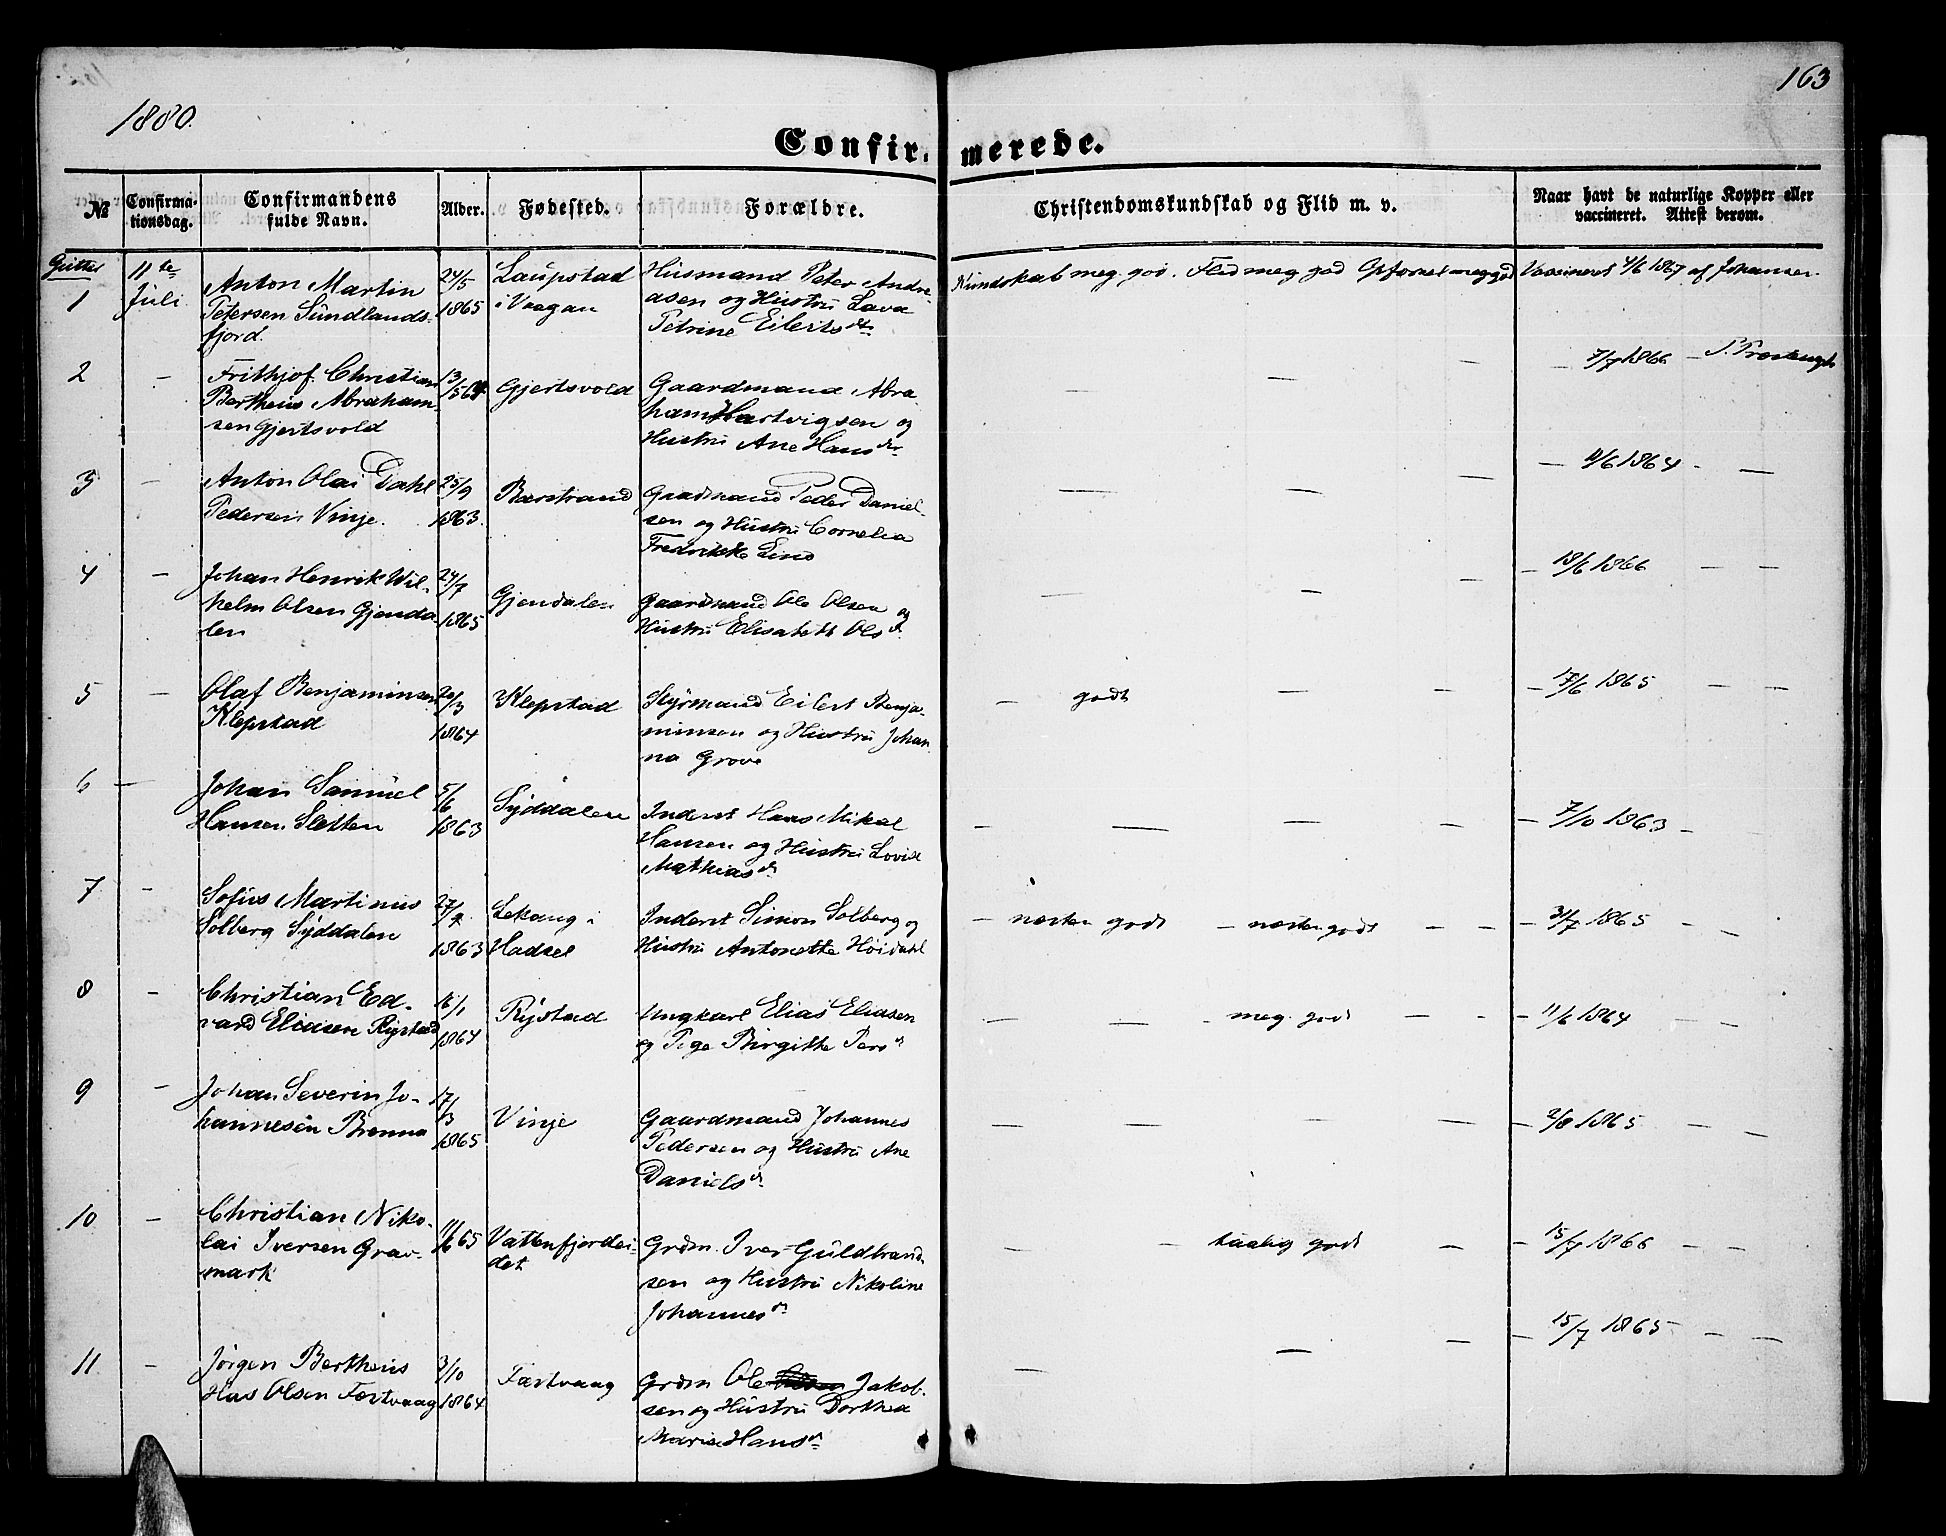 163
1880.
Confirmerede.
№
Confirmationsdag.
Confirmandens fulde Navn.
Alder.
Fødested.
Forældre.
Christendomskundskab og Flid m. v.
Naar havt de naturlige Kopper eller vaccineret. Attest derom.
Gutter
1
11te Juli
Anton Martin
Petersen Sundlands-
fjord.
24/5
1865
Laupstad
i Vaagan
Husmand Peter Andre-
asen og Hustru Lava
Petrine Eilertsdtr
Kundskab meg. god. Flid meg god Opførsel meg god
Vaccineret 4/6 1867 af Johansen
2
–
Frithjof Christian
Bertheus Abraham-
sen Gjertsvold
13/5 64
Gjertsvold
Gaardmand Abra-
ham Hartvigsen og
Hustru Ane Hansdtr
– – –
– 7/7 1866 –
3
–
Anton Olai Dahl
Pedersen Vinje.
25/9
1863.
Barstrand
Gaardmand Peder Daniel-
sen og Hustru Cornelia
Fredrikke Lind
– – –
– 11/6 1864 – –
4
–
Johan Henrik Wil-
helm Olsen Gjenda-
len
24/7
1865
Gjendalen
Gaardmand Ole Olsen og
Hustru Elisabeth Olsd.
– – –
– 18/6 1866 – –
5
–
Olaf Benjaminsen
Klepstad
20/3
1864
Klepstad
Styrmand Eilert Benja-
minsen og Hustru Johan-
na Grove
– godt – –
– 17/6 1865 – –
6
–
Johan Samuel
Hansen Sletten
5/6
1863
Syddalen
Inderst Hans Mikal
Hansen og Hustru Lovise
Mathiasd.
– – – –
– 7/10 1863 –
7
–
Sofus Martinus
Solberg Syddalen
27/2
1863
Lekang i
Hadsel
Inderst Simon Solberg og
Hustru Antonette Høidahl
– næsten godt – næsten godt – –
– 31/7 1865 – –
8
–
Christian Ed-
vard Eliasen Rystad
16/1
1864
Rystad
Ungkarl Elias Eliasen
og Pige Birgitte Persd.
– – – meg. god – –
– 11/6 1864 – –
9
–
Johan Severin Jo-
hannesen Brenna
17/3
1865
Vinje
Gaardmand Johannes
Pedersen og Hustru Ane
Danielsd.
– – – –
– 2/8 1865 – –
10
–
Christian Niko-
lai Iversen Grav-
mark
11/6 65
Vattenfjordei-
det
Grdm. Iver Guldbrand-
sen og Hustru Nikoline
Johannesd.
– – taalig godt –
– 15/7 1866 – –
11
–
Jørgen Bertheus
Has Olsen Fæstvaag
3/10
1864
Fæstvaag
Grdm Ole Jakob-
sen og Hustru Dorthea
Marie Hansd.
– – –
– 15/7 1865 – –